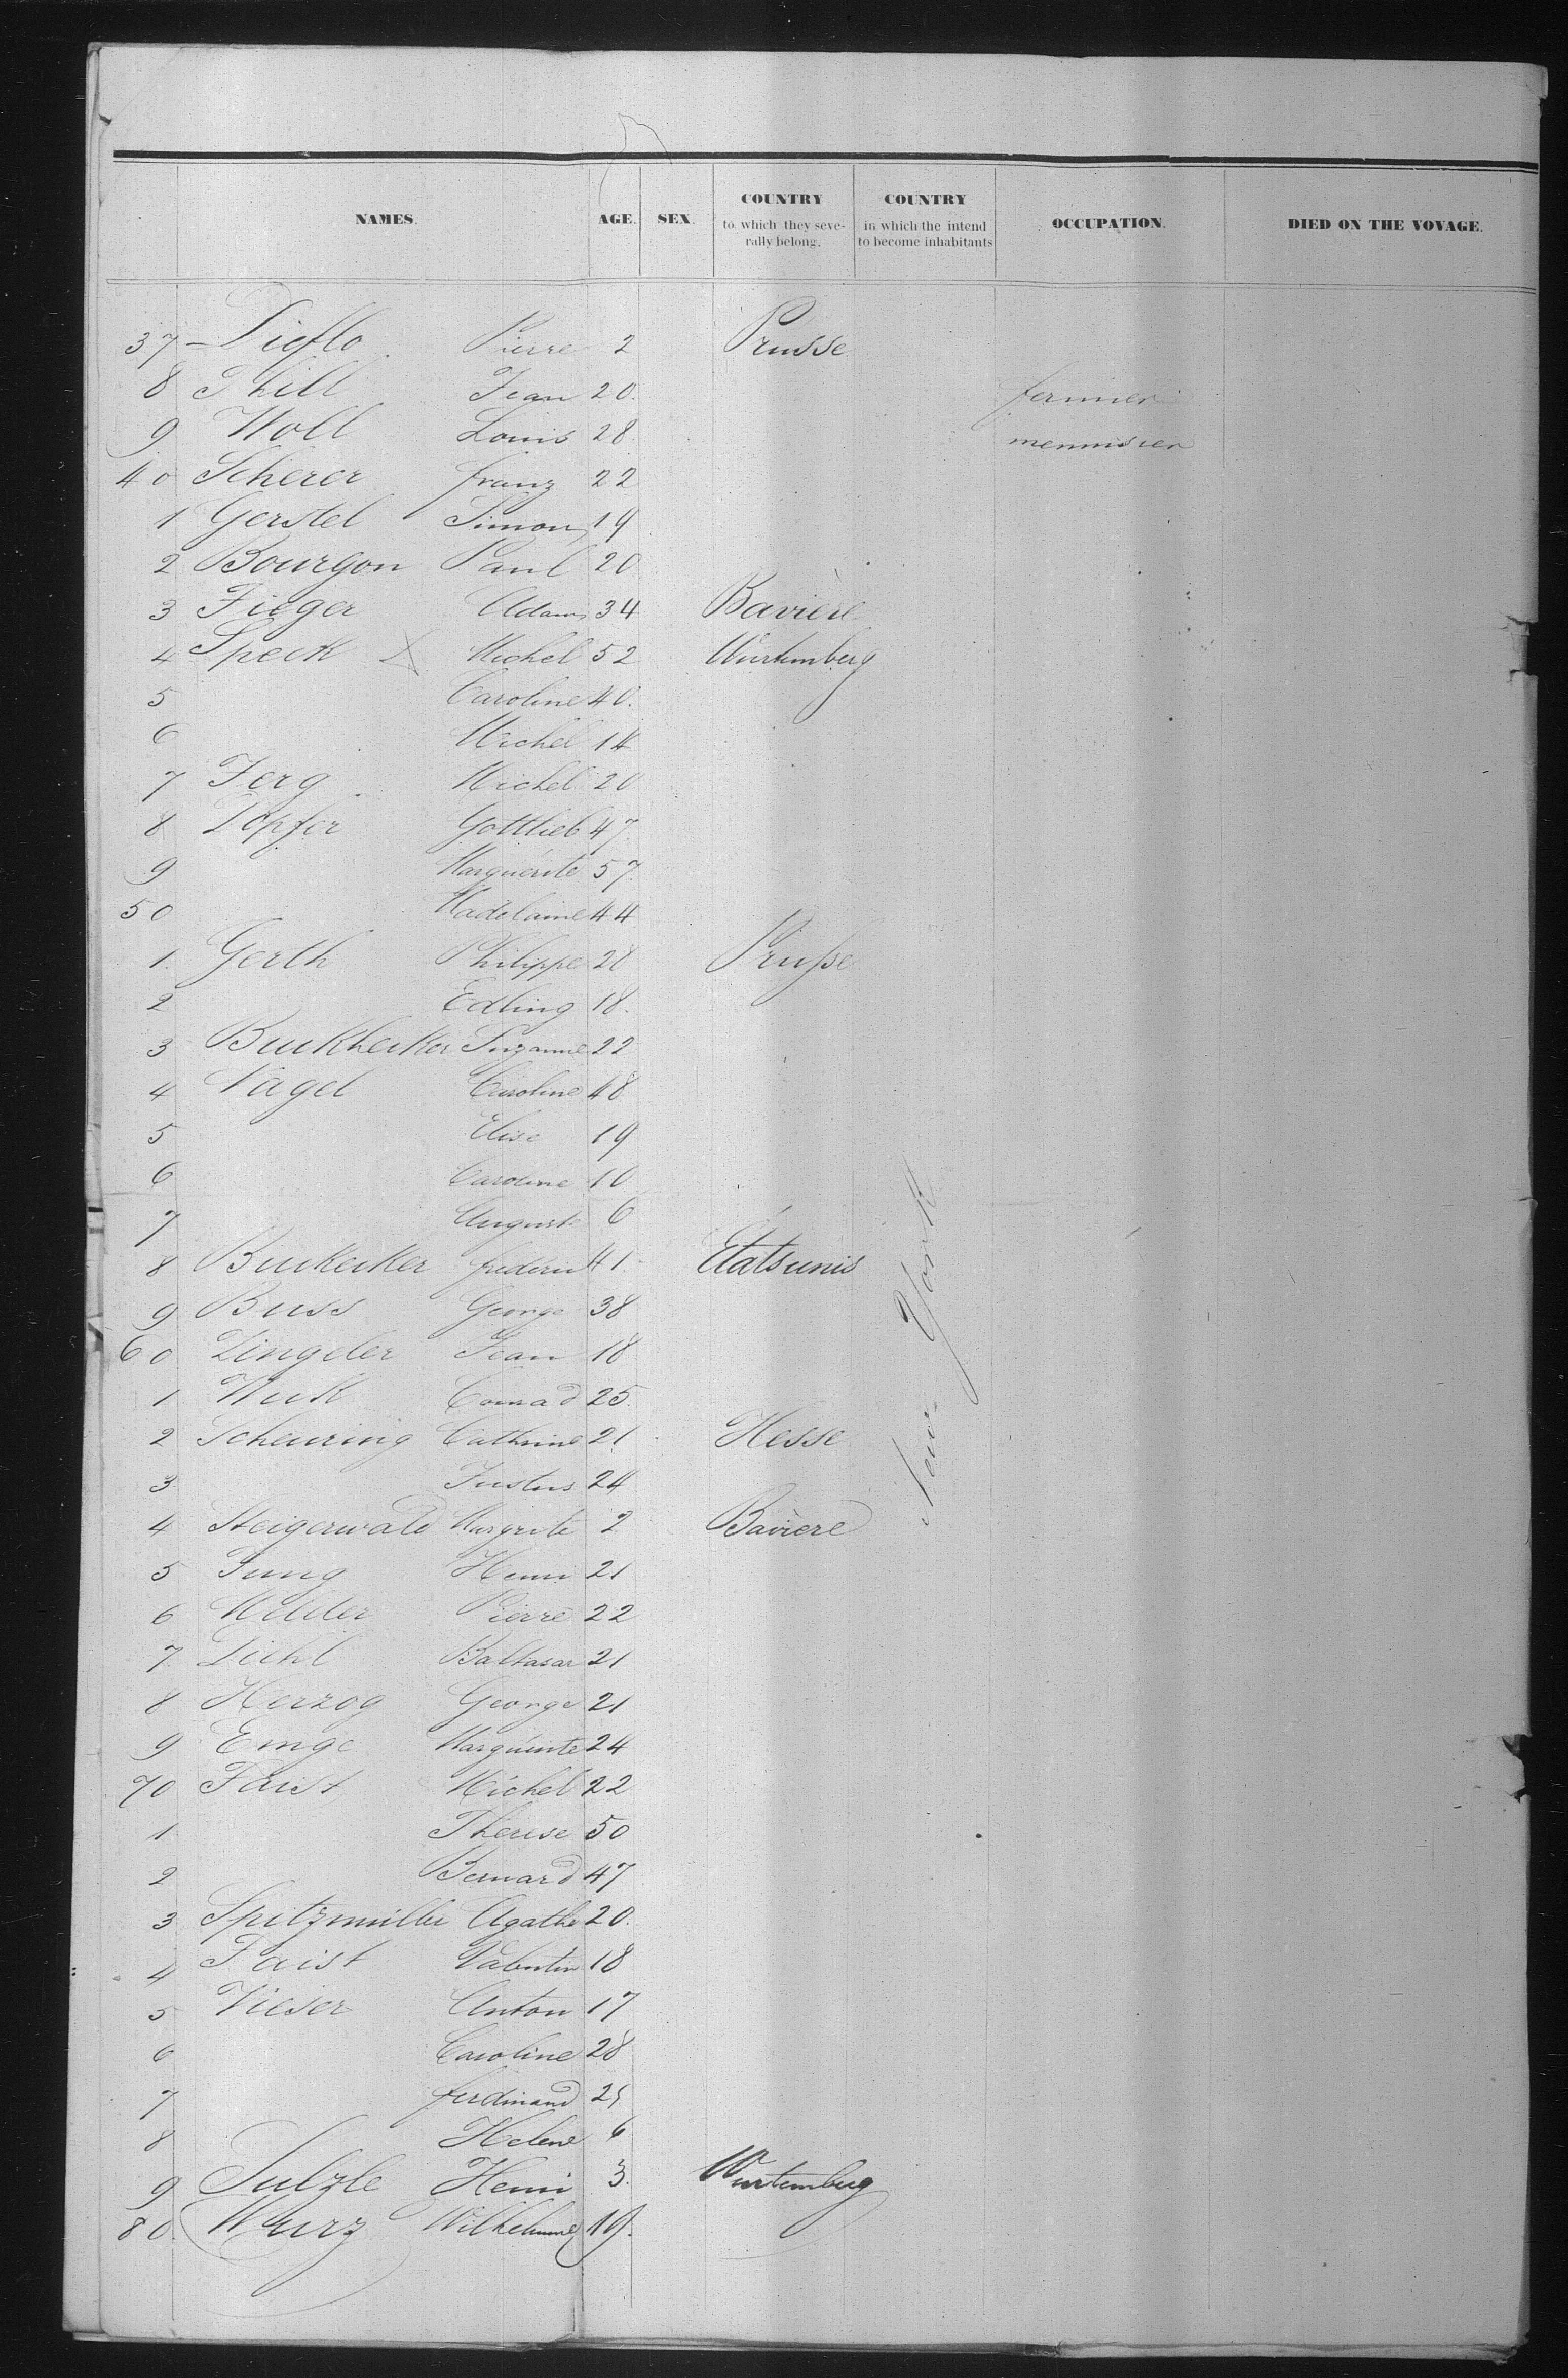 NAMES. AGE. SEX. COUNTRY to which they severally belong. COUNTRY in which the intend to become inhabitants OCCUPATION. DIED ON THE VOYAGE.
37 Pierre 2 Prusse
8 Thill Jean 20 fermier
9 Woll Louis 28 menuisier
40 Scherer franz 22
1 Gerstel Simon 19
2 Bourgon Paul 20
3 Fieger Adam 34 Bavière
4 Speck X Michel 52 Wurtemberg
5 Caroline 40
6 Michel 14
7 Jerg Michel 20
8 Töpfer Gottlieb 47
9 Marguerite 57
50 Madelaine 44
1 Gerth Philippe 28 Prusse
2 Edling 18
3 Suzanne 22
4 Nagel Caroline 48
5 Elise 19
6 Caroline 10
7 Auguste 6
8 frederic 41 Etatsunis
9 Buss George 38
60 Zingeler Jean 18
1 Conrad 25
2 Scheuring Cathrine 21 Hesse
3 Justus 24
4 Steigerwald Margrite 2 Bavière
5 Jung Henri 21
6 Pierre 22
7 Diehl Baltasar 21
8 Herzog George 21
9 Emge Marguerite 24
70 Faist Michel 22
1 Therese 50
2 Bernard 47
3 Spitzmüller Agathe 20
4 Faist Valentin 18
5 Vieser Anton 17
6 Caroline 28
7 ferdinand 25
8 Helene 6
9 Sulzle Henri 3 Wurtemberg
80 Wurz Wilhelmine 19
New York